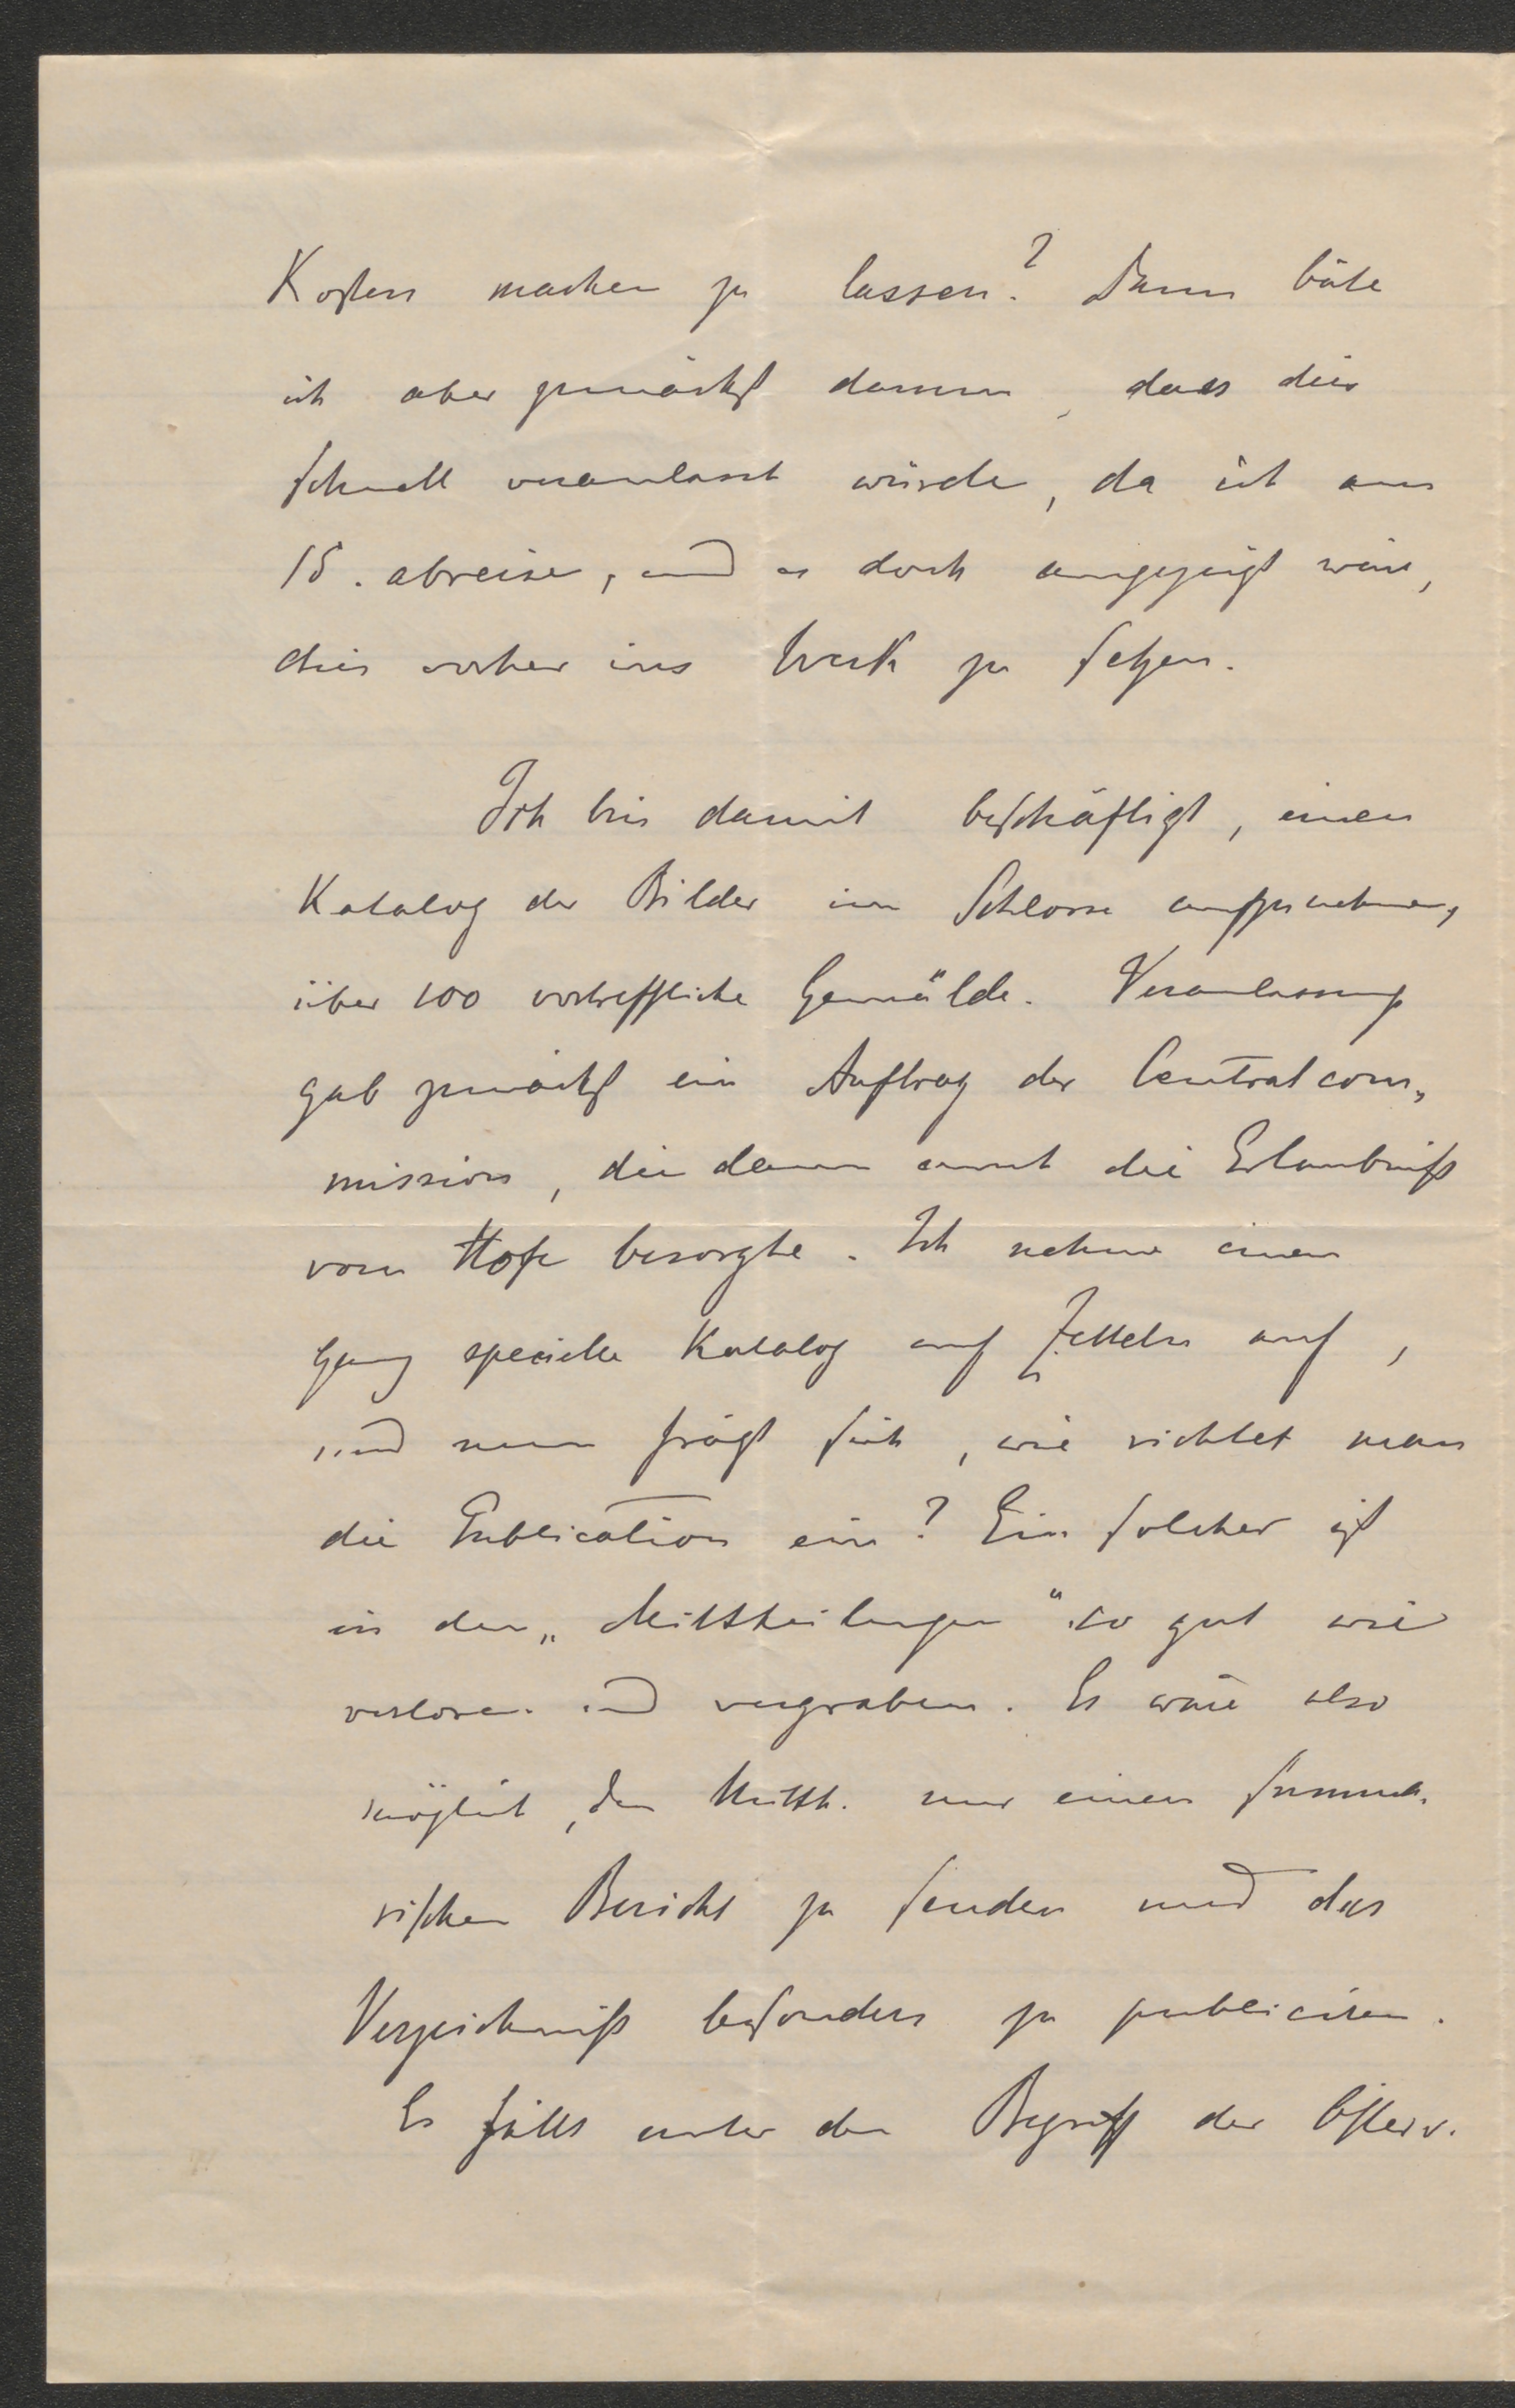 Kosten machen zu lassen? Dann bäte
ich aber zunächst darum, dass dies
schnell veranlasst würde, da ich am
15. abreise, und es doch angezeigt wäre,
dies vorher ins Werk zu setzen.
Ich bin damit beschäftigt, einen
Katalog der Bilder im Schlosse aufzunehmen,
über 100 vortreffliche Gemälde. Veranlassung
gab zunächst ein Auftrag der Centralcom-
mission, die dann auch die Erlaubniß
vom Hofe besorgte. Ich nehme einen
ganz specielle Katalog auf Zetteln auf,
und nun frägt sich, wie richtet man
die Publication ein? Ein solcher ist
in den „Mittheilungen" so gut wie
verloren und vergraben. Es wäre also
möglich, den Mitth. nur einen summa-
rischen Bericht zu senden und das
Verzeichniß besonders zu publiciren.
Es fällt unter den Begriff der Österr.